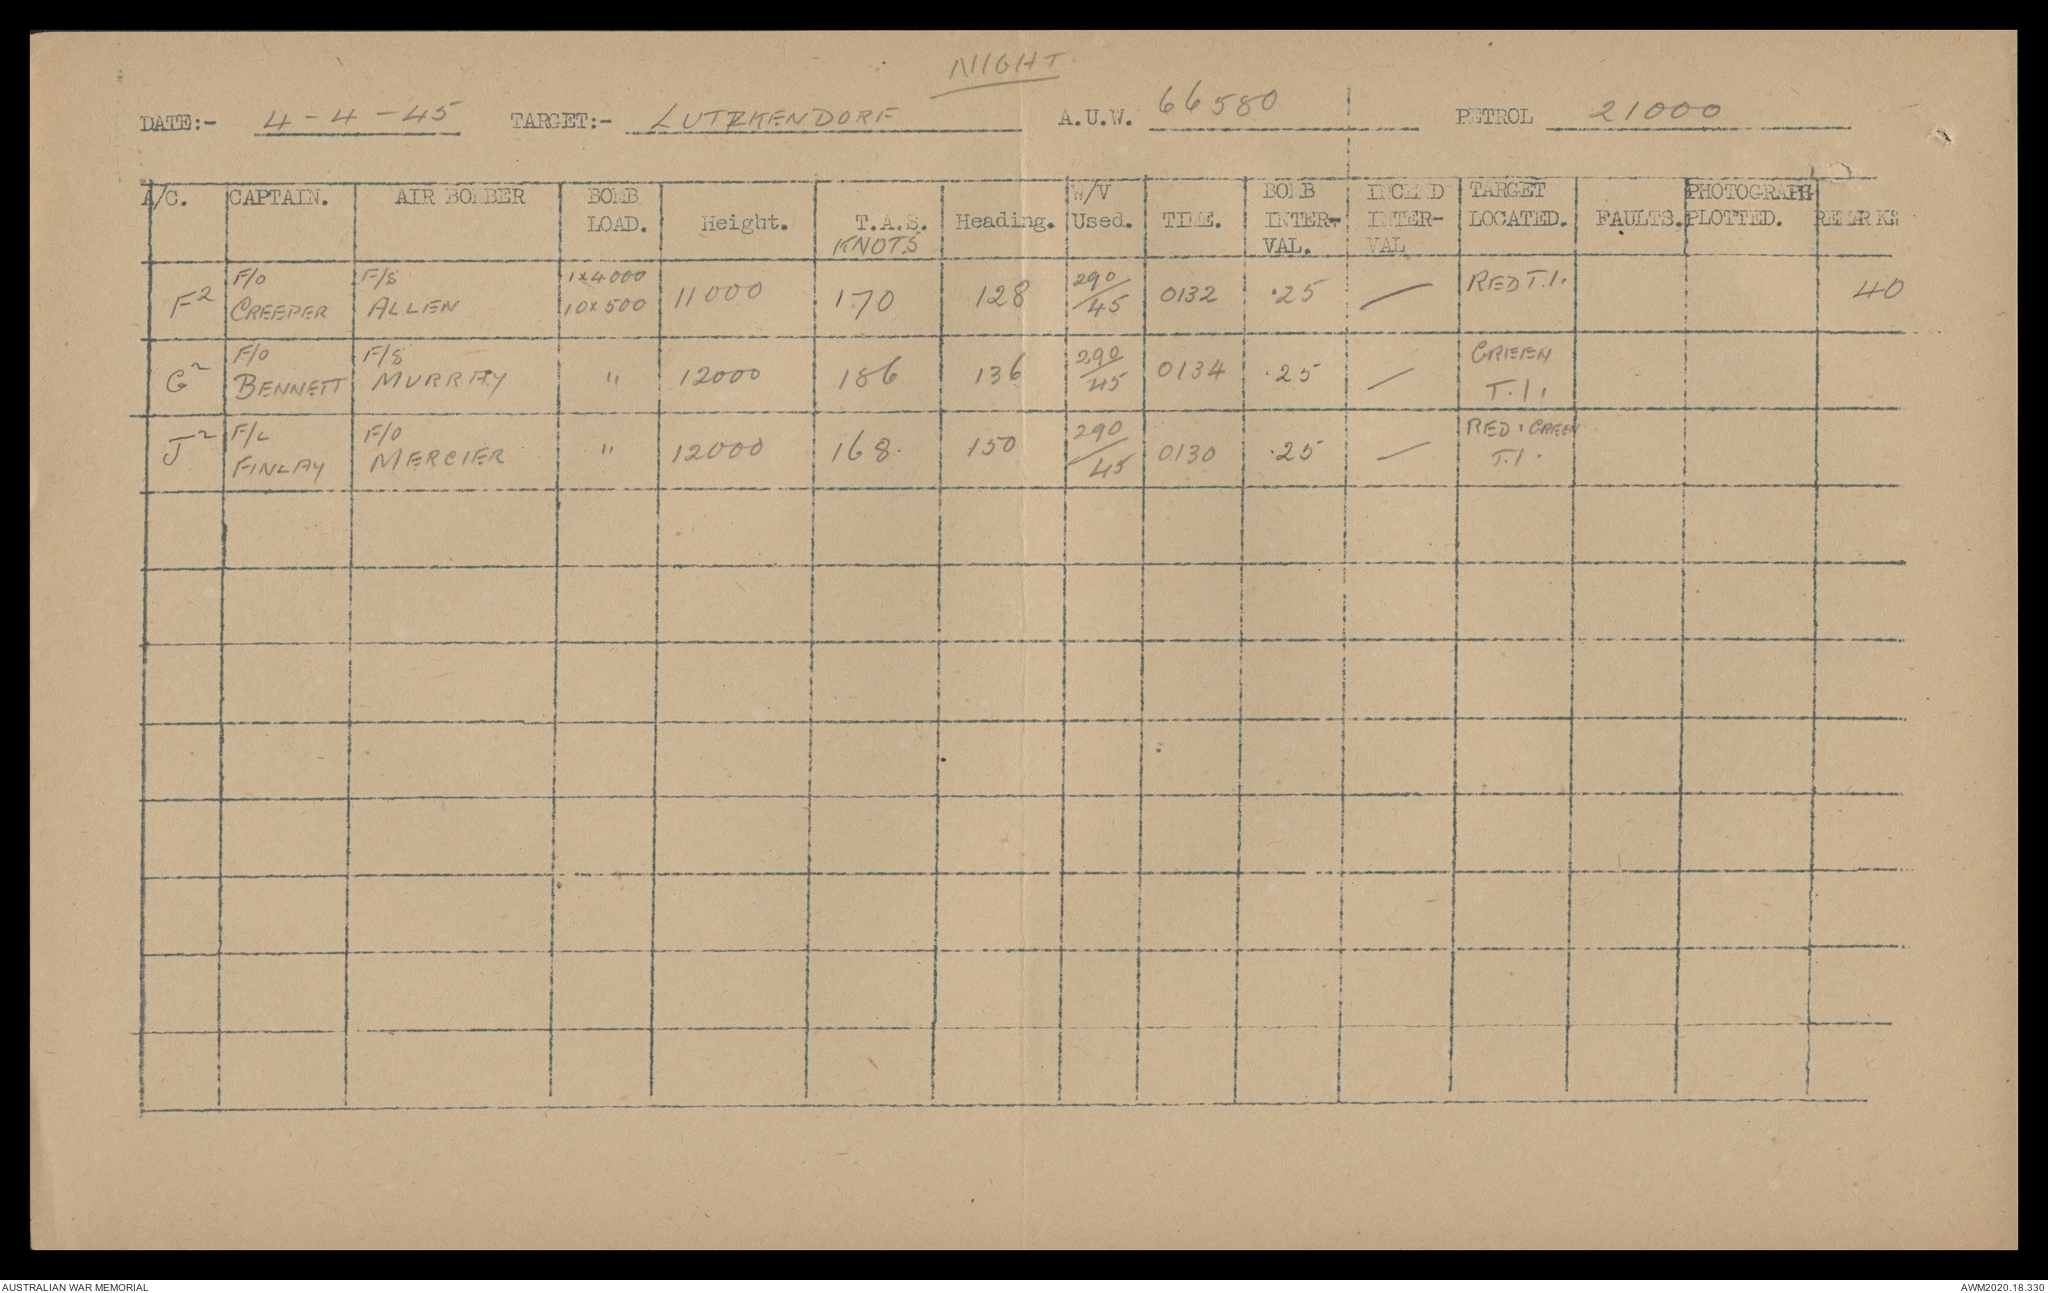 NIGHT
DATE:- 4-4-45 TARGET:- LUTZKENDORF A.U.W. 66580 PETROL 21000
A/C. CAPTAIN. AIR BOMBER BOMB LOAD. Height. T.A.S. KNOTS Heading. W/V Used. TIME. BOMB INTER-VAL. INCEND INTER-VAL TARGET LOCATED. FAULTS. PHOTOGRAPH PLOTTED. REMARKS
F2 F/O CREEPER F/S ALLEN 1x4000 10x500 11000 170 128 290/45 0132 .25 — RED T.I. 40
G2 F/O BENNETT F/S MURRAY " 12000 186 136 290/45 0134 .25 — GREEN T.I.
J2 F/L FINLAY F/O MERCIER " 12000 168. 150 290/45 0130 .25 — RED + GREEN T.I.
AUSTRALIAN WAR MEMORIAL AWM2020.18.330